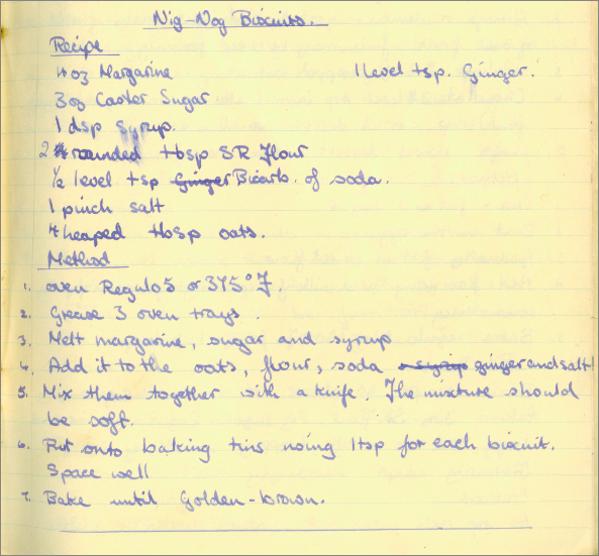 Nig-Nog Biscuits.
Recipe
4oz Margarine 1 level tsp. Ginger.
3oz Caster Sugar
1 dsp syrup.
2 rounded tbsp SR Flour
½ level tsp Ginger Bicarb. of soda.
1 pinch salt
4 heaped tbsp oats.
Method
1. oven Regulo 5 or 375°F.
2. Grease 3 oven trays.
3. Melt margarine, sugar and syrup
4. Add it to the oats, flour, soda & syrup ginger and salt
5. Mix them together with a knife. The mixture should
be soft.
6. Put onto baking tins using 1tsp for each biscuit.
Space well
7. Bake until Golden-brown.